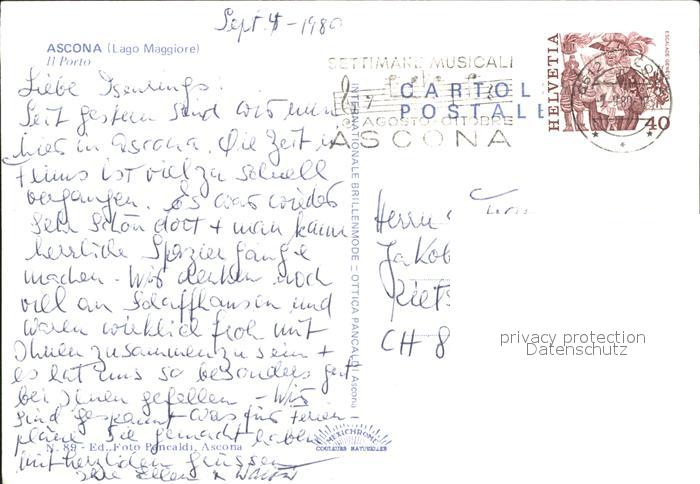 Sept. 4 - 1980
ASCONA (Lago Maggiore)
Il Porto
Liebe
Seit gestern sind wir nun
hier in Ascona. Die Zeit in
Flims ist viel zu schnell
vergangen. Es war wieder
sehr schön dort + man kann
herrliche Spaziergänge
machen. Wir denken noch
viel an Schaffhausen und
waren wirklich froh mit
Ihnen zusammen zu sein +
es hat uns so besonders gut
bei Ihnen gefallen - Wir
sind gespannt was für Ferien-
pläne Sie gemacht haben
mit herzlichen Grüssen
Ihre Ellen + Walter
N. 89 - Ed. Foto Pancaldi, Ascona
MEXICHROME
COULEURS NATURELLES
INTERNATIONALE BRILLENMODE = OTTICA PANCALDI Ascona
SETTIMANE MUSICALI
AGOSTO OTTOBRE
ASCONA
CARTOL
POSTALE
HELVETIA
ESCALADE GENÈVE
40
6612 ASCONA
Herrn
Jakob
Riets
CH 8
privacy protection
Datenschutz